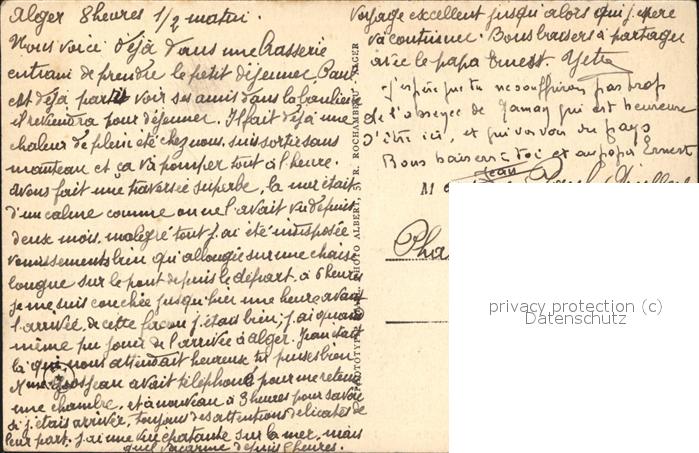 Alger 8 heures 1/2 matin.
Nous voici déjà dans une brasserie
en train de prendre le petit déjeuner Paul
est déjà partit voir ses amis dans la banlieue
il reviendra pour déjeuner. Il fait déjà une
chaleur de plein été chez nous, suis sortie sans
manteau et ça va pomper tout à l'heure.
Avons fait une traversée superbe, la mer était
d'un calme comme on ne l'avait vu depuis
deux mois, malgré tout j'ai été indisposée
vomissements bien qu'allongée sur une chaise
longue sur le pont depuis le départ, à 6 heures
je me suis couchée jusqu'à une heure avant
l'arrivée, de cette façon j'étais bien, j'ai quand
même pu jouir de l'arrivée à Alger. Jean était
là qui nous attendait heureux tu penses bien
Mme Grosjean avait téléphoné pour me retenir
une chambre, et à nouveau à 3 heures pour savoir
si j'étais arrivée, toujours des attentions délicates de
leur part. J'ai une vue épatante sur la mer, mais
quel vacarme depuis heures.
Voyage excellent jusqu'alors qui j'espère
va continuer. Bons baisers à partager
avec le papa Ernest. Yette
J'espère que tu ne souffriras pas trop
de l'absence de Maman qui est heureuse
d'être ici, et qui va voir du pays
Bons baisers à toi et au papa Ernest
Jean
M
Pha
PHOTO ALBERT, 5, R. ROCHAMBEAU - ALGER
privacy protection (c)
Datenschutz